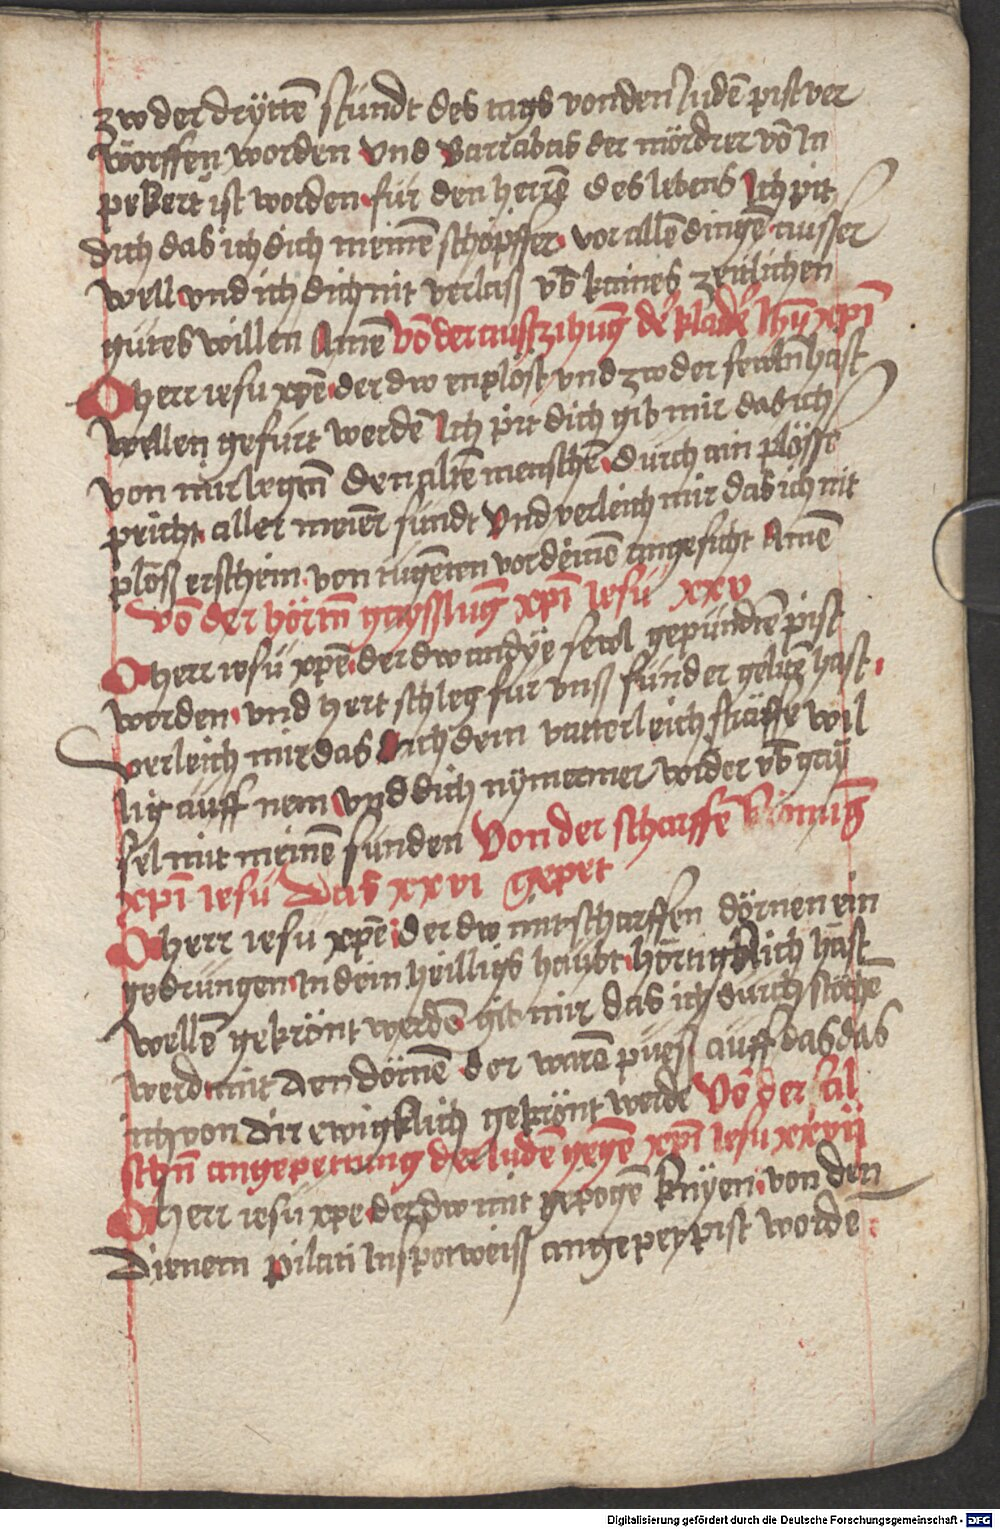 zw der drÿttē stundt des tags von den Judē pist ver
worffen worden vnd Barrabas der mördrer vō in
pekert ist worden für den herrē des lebens Ich pit
dich das ich dich meinē schöpffer vor allē dingē ausser
well vnd ich dich nit verlass vb̄ kaines zeitlichen
gutes willen Amē Vō der ausszihūg
O herr iesu xp̄e der dw enplöst vnd zw der
wellen gefürt werdē Ich pit dich gib mir das ich
von mir legē den altē menschē durch ain plösse
peicht aller meiner sündt Vnd verleich mir das ich nit
ploss erschein von tugēten vor deinē angesicht Amē
Vō der hörtn̄ gaysslūg xp̄i Iesu xxv
O herr iesu xp̄e der dw an dÿe sewl gepundē pist
worden vnd hert schleg für vnss sünder gelitē hast
verleich mir das ich dein vatterleich straffe wil
lig auff nem vnd dich nÿmermer wider vb̄ gaÿ
sel mit meinē sünden Von der scharffē krönūg
xp̄i Iesu Das xxvi gepet
O herr iesu xp̄e der dw mit scharffen dörnen ein
gedrungen in dein heilligs haubt hörtigklich hast
wellē gekrönt werdē gib mir das ich durch stochē
werd mit den dörnē der warē puess auff das das
ich von dir ewigklich gekrönt werde Vō der fal
schn̄ angepettung der Iudē gegē xp̄i Iesu xxvii
O herr iesu xpe der dw mit gepogē knÿen von den
dienern pilati in spotweiss angepeÿ pist worde
Digitalisierung gefördert durch die Deutsche Forschungsgemeinschaft - DFG